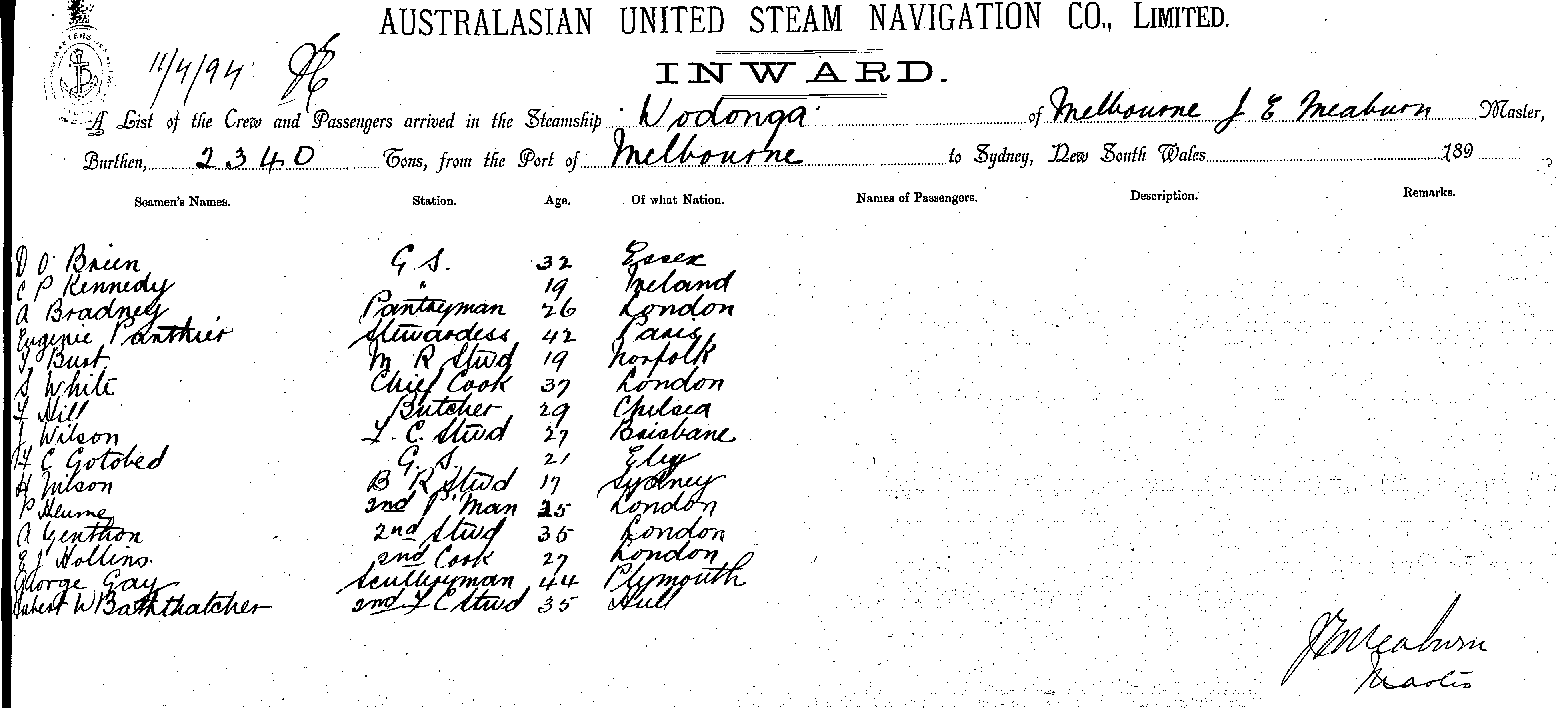 AUSTRALASIAN UNITED STEAM NAVIGATION CO., LIMITED.
11/4/94
INWARD.
A List of the Crew and Passengers arrived in the Steamship Wodonga of Melbourne J E Meaburn Master,
Burthen, 2340 Tons, from the Port of Melbourne to Sydney, New South Wales 189
Seamen's Names. Station. Age. Of what Nation. Names of Passengers. Description. Remarks.
D O'Brien G S. 32 Essex
C P Kennedy " 19 Ireland
A Bradney Pantryman 26 London
Eugenie Panthier Stewardess 42 Paris
Burt M R Stwd 19 Norfolk
S White Chief Cook 37 London
F Hill Butcher 29 Chelsea
J Wilson F. C. Stwd 27 Brisbane
H C Gotobed G. S. 21 Ely
H Nilson B R Stwd 17 Sydney
P Hume 2nd P'Man 25 London
A Genthon 2nd Stwd 35 London
E J Hollins. 2nd Cook 27 London
George Gay Scullryman 44 Plymouth
Robert W Bathchatcher 2nd F C Stwd 35 Hull
J E Meaburn
Master